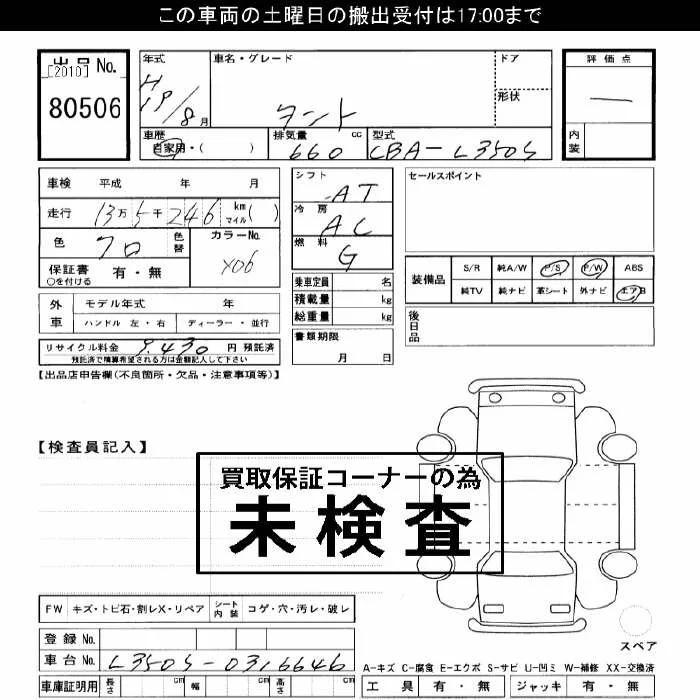 この車両の土曜日の搬出受付は17:00まで
出品 No.
[2010]
80506
年式
H19/8月
車名・グレード
タント
ドア
形状
評価点
—
内装
車歴
自家用・( )
排気量 cc
660
型式
CBA-L350S
車検 平成 年 月
走行 13万5千246 km マイル( )
色 クロ 色替
カラーNo.
X06
保証書 ○を付ける 有・無
シフト AT
冷房 AC
燃料 G
セールスポイント
装備品 S/R 純A/W P/S P/W ABS
純TV 純ナビ 革シート 外ナビ エアB
後日品
乗車定員 名
積載量 kg
総重量 kg
書類期限
月 日
外車 モデル年式 年
ハンドル 左・右 ディーラー・並行
リサイクル料金 9,430 円 預託済
預託済で積算希望される方は金額記入して下さい
【出品店申告欄(不良箇所・欠品・注意事項等)】
【検査員記入】
買取保証コーナーの為
未検査
FW キズ・トビ石・割レX・リペア シート内装 コゲ・穴・汚レ・破レ
登録 No.
車台 No. L350S-0316646
車庫証明用 長さ cm 幅 cm 高さ cm
スペア
A-キズ C-腐食 E-エクボ S-サビ U-凹ミ W-補修 XX-交換済
工具 有・無 ジャッキ 有・無